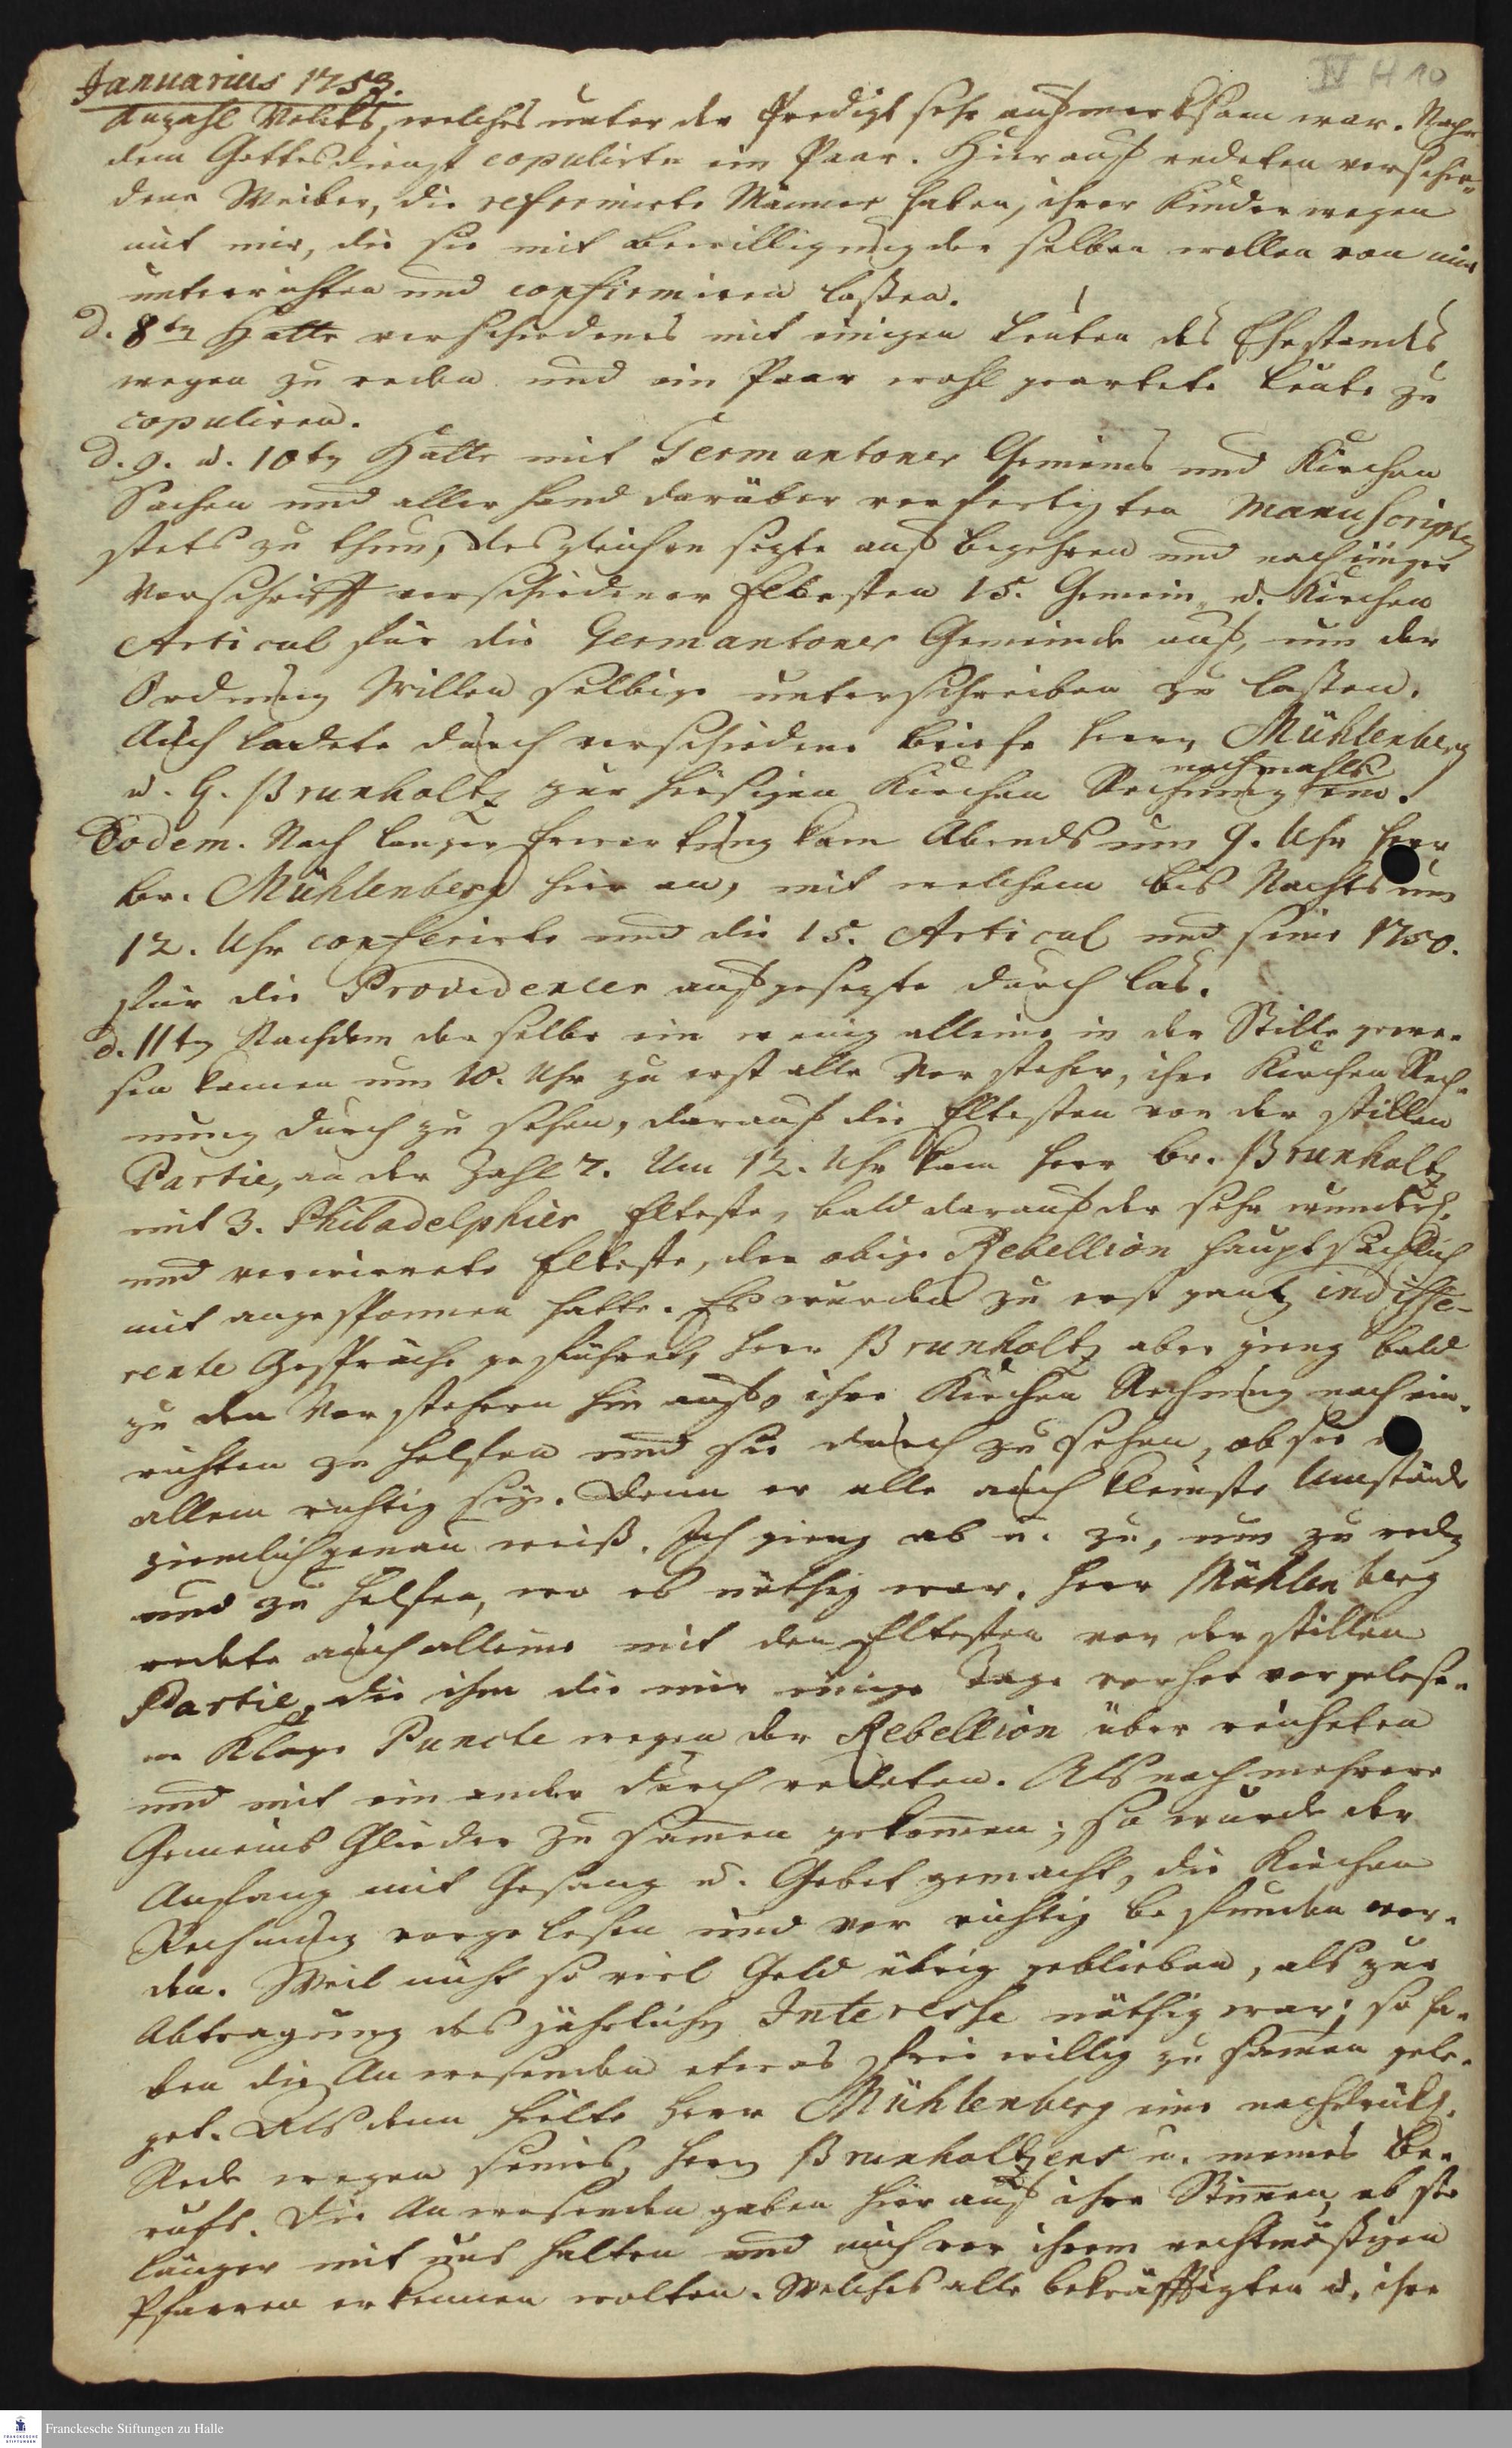 IV H 10
Januarius 1753.
Anzahl Volcks, welches unter der Predigt sehr aufmercksam war. Nach
dem Gottesdienst copulirte ein Paar. Hierauf redeten verschie-
dene Weiber, die reformirte Männer haben, ihrer Kinder wegen
mit mir, die sie mit Bewilligung der selben wollen von mir
unterrichten und confirmiren laßen.
d. 8ten Hatte verschiedenes mit einigen Leuten des Ehestandes
wegen zu reden und ein Paar wohl geartete Leute zu
copuliren.
d. 9. u. 10ten Hatte mit Germantoner Gemeins und Kirchen
Sachen und aller hand darüber verfertigten Manuscripten
stets zu thun, desgleichen sezte auf Begehren und nach einiger
Vorschrifft verschiedener Eltesten 15. Gemein u. Kirchen
Articul für die Germantoner Gemeinde auf, um der
Ordnung Willen selbige unterschreiben zu laßen.
Auch ladete durch verschiedene Briefe Herrn Mühlenberg
nochmahls
u. H. Brunholtz zur hiesigen Kirchen Rechnung ein.
Eodem. Nach langer Erwartung kam Abends um 9. Uhr Herr
Br. Mühlenberg hier an, mit welchem bis Nachts um
12. Uhr conferirte und die 15. Articul und seine 1750.
für die Providencer aufgesezte durch las.
d. 11ten Nachdem der selbe ein wenig alleine in der Stille gewe-
sen kamen um 10. Uhr zu erst alle Vorsteher, ihre Kirchen Rech-
nung durch zu sehen, darauf die Eltesten von der stillen
Partie, an der Zahl 7. Um 12. Uhr kam Herr Br. Brunholtz
mit 3. Philadelphier Elteste, bald darauf der sehr wunderl.
und verwirrete Elteste, der obige Rebellion hauptsächlich
mit angesponnen hatte. Es wurden zu erst gantz indiffe-
rente Gespräche geführet, Herr Brunholtz aber gieng bald
zu den Vorstehern hin auf, ihre Kirchen Rechnung noch ein-
richten zu helfen und sie durch zu sehen, ob sie
allem richtig sey. Denn er alle auch kleinste Umstände
ziemlich genau weiß. Ich gieng ab u. zu, um zu reden
und zu helfen, wo es nöthig war. Herr Mühlenberg
redete auch alleine mit den Eltesten von der stillen
Partie, die ihm die mir einige Tage vorher vorgelese-
ne Klage Puncte wegen der Rebellion über reicheten
und mit ein ander durch redeten. Als noch mehrere
Gemeins Glieder zu samen gekomen; so wurde der
Anfang mit Gesang u. Gebet gemacht, die Kirchen
Rechnung vorgelesen und vor richtig befunden wor-
den. Weil nicht so viel Geld übrig geblieben, als zur
Abtragung des jährlichen Interesse nöthig war; so ha-
ben die Anwesenden etwas frei willig zu samen gele-
get. Als denn hielte Herr Mühlenberg eine nachdrückl.
Rede wegen seines, Herrn Brunholtzens u. meines Be-
rufs. Die Anwesenden gaben hierauf ihre Stimen, ob sie
länger mit uns halten und mich vor ihrem rechtmäßigen
Pfarren erkennen wolten. Welches alle bekräfftigten u. ihre
Franckesche Stiftungen zu Halle